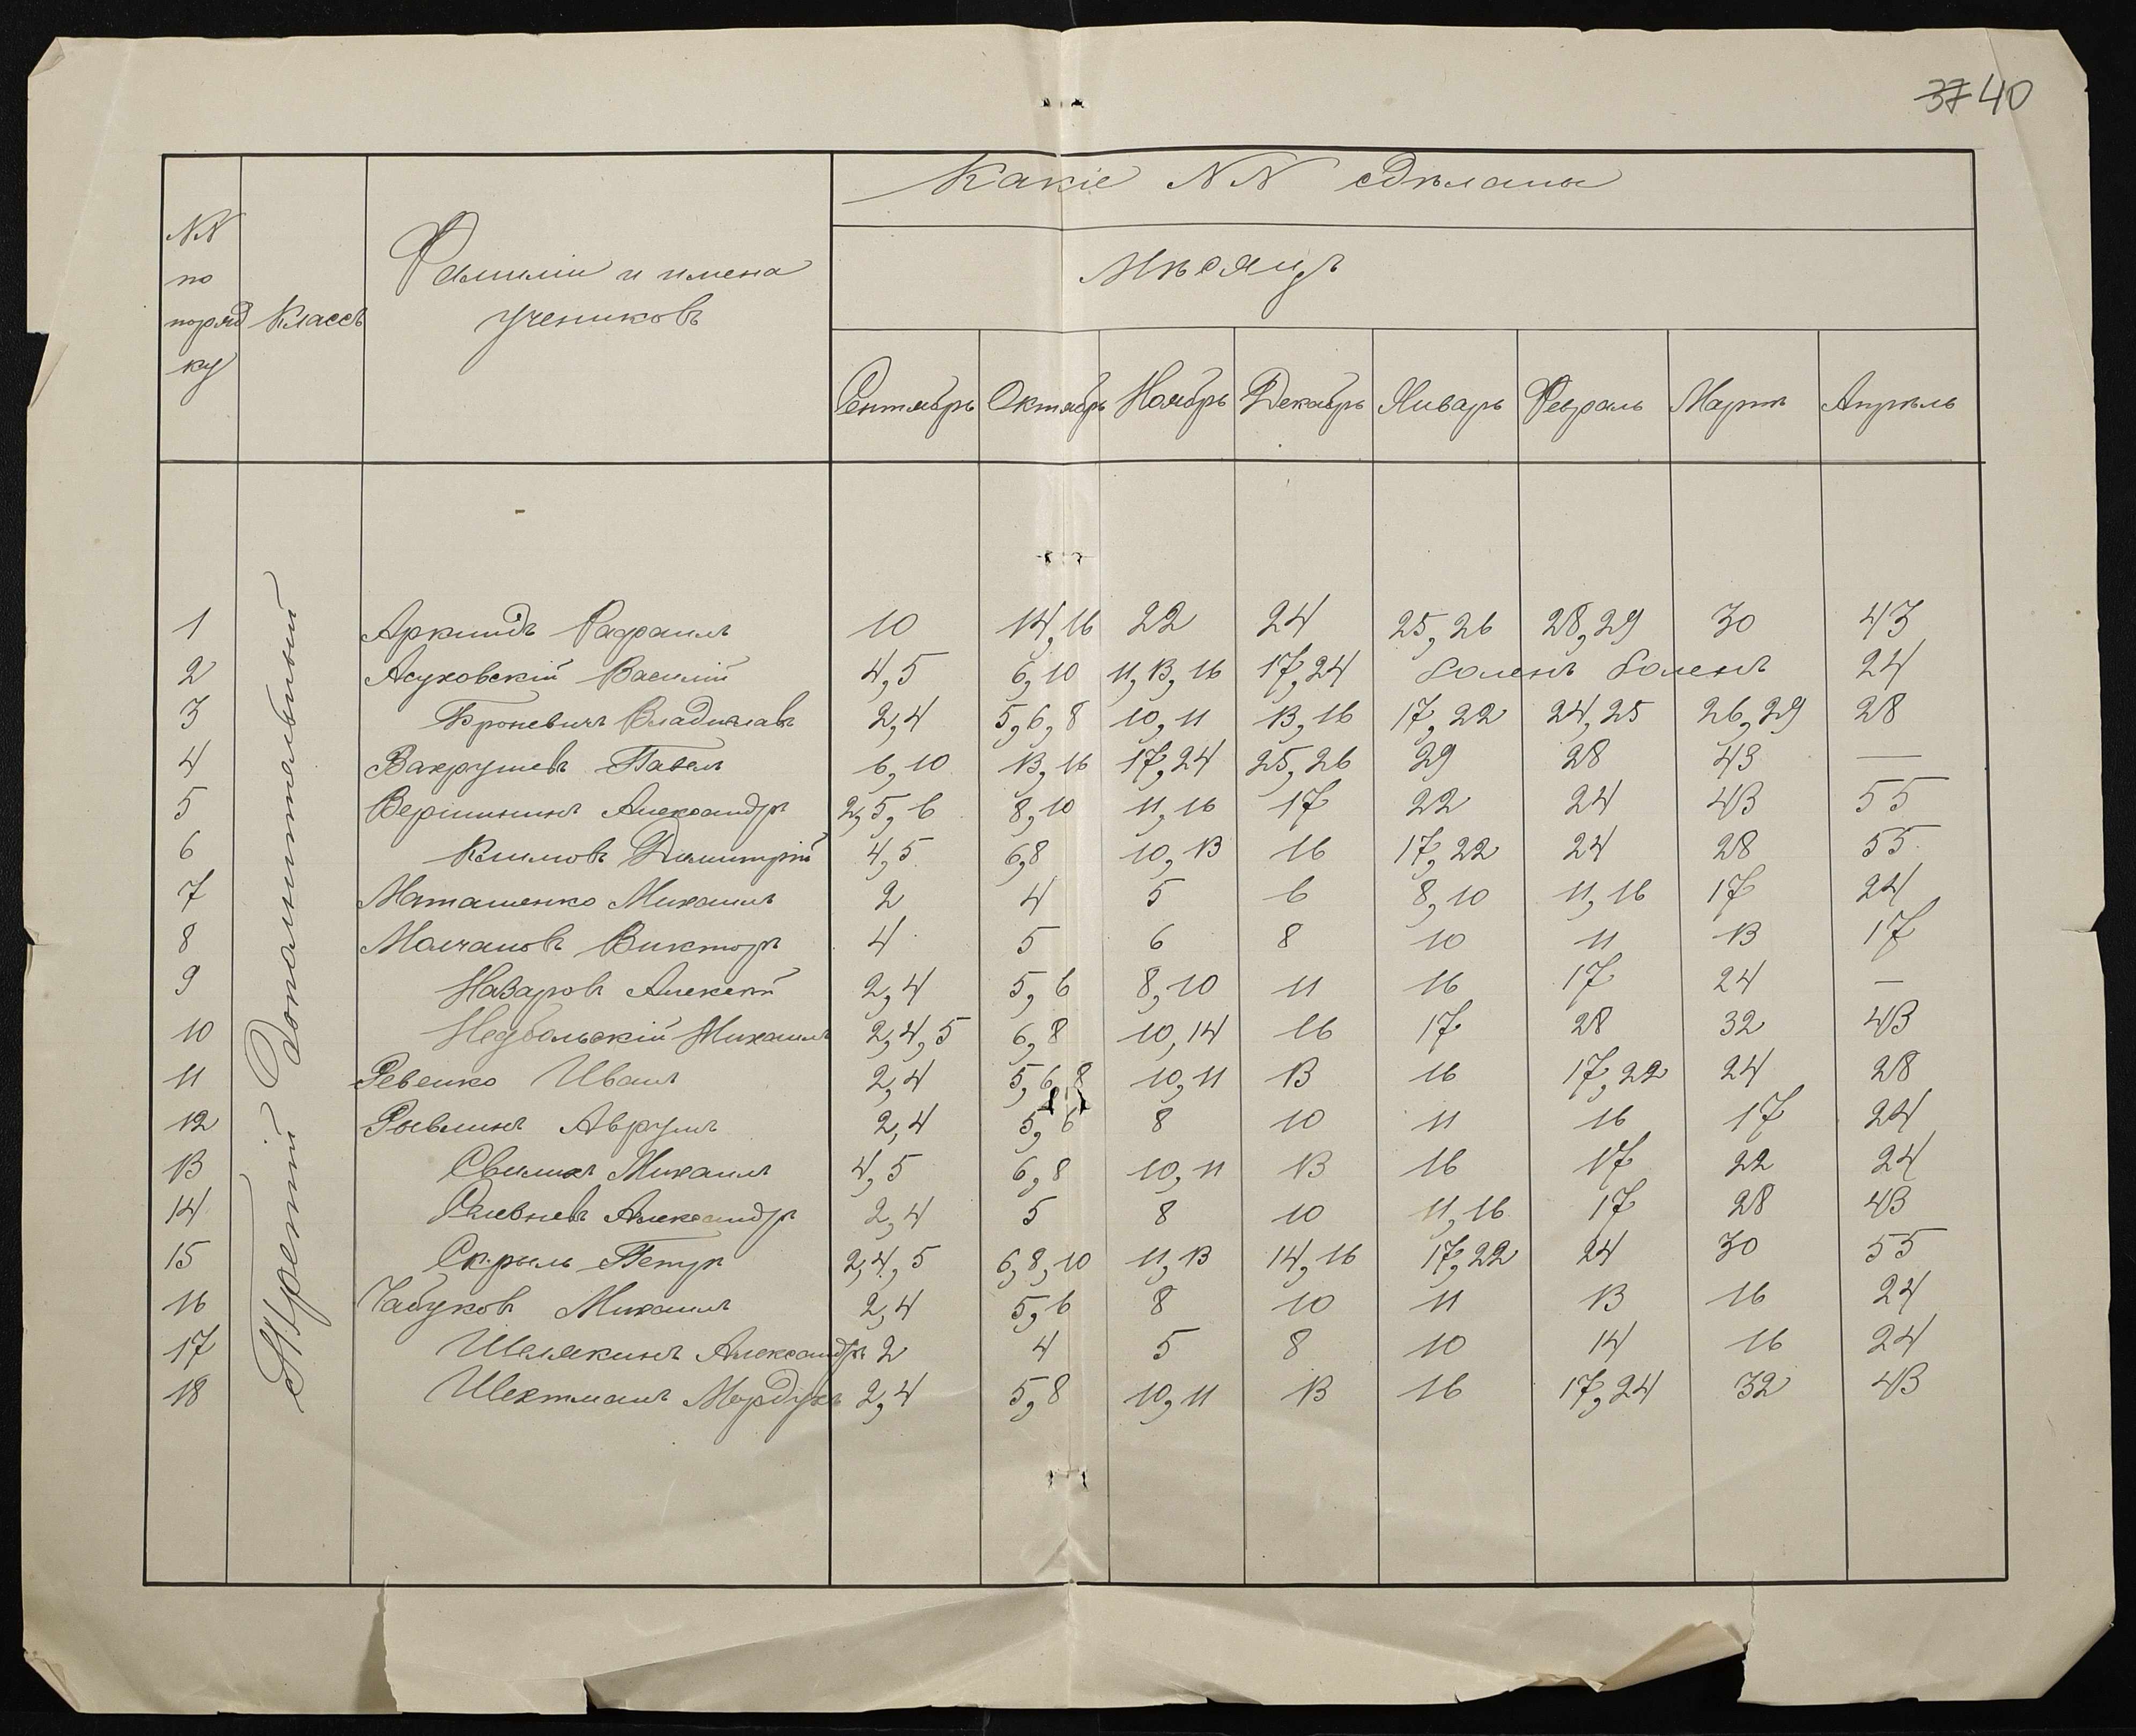 37 40
Какіе NN сдѣланы
NN
по
поряд
ку
Классъ
Фамиліи и имена
учениковъ
Мѣсяцъ
Сентябрь Октябрь Ноябрь Декабрь Январь Февраль Мартъ Апрѣль
Третій Дополнительный
1 Рафаилъ 10 14,16 22 24 25,26 28,29 30 43
2 Василій 4,5 6,10 11,13,16 17,24 боленъ боленъ 24
3 Броневичъ Владиславъ 2,4 5,6,8 10,11 13,16 17,22 24,25 26,29 28
4 Вахрушевъ Павелъ 6,10 13,16 17,24 25,26 29 28 43 —
5 Вершининъ Александръ 2,5,6 8,10 11,16 17 22 24 43 55
6 Климовъ Димитрій 4,5 6,8 10,13 16 17,22 24 28 55
7 Маташенко Михаилъ 2 4 5 6 8,10 11,16 17 24
8 Молчановъ Викторъ 4 5 6 8 10 11 13 17
9 Назаровъ Алексѣй 2,4 5,6 8,10 11 16 17 24 —
10 Михаилъ 2,4,5 6,8 10,14 16 17 28 32 43
11 Ревенко Иванъ 2,4 5,6,8 10,11 13 16 17,22 24 28
12 Рывлинъ Аврумъ 2,4 5,6 8 10 11 16 17 24
13 Михаилъ 4,5 6,8 10,11 13 16 17 22 24
14 Александръ 2,4 5 8 10 11,16 17 28 43
15 Скрыль Петръ 2,4,5 6,8,10 11,13 14,16 17,22 24 30 55
16 Чабуковъ Михаилъ 2,4 5,6 8 10 11 13 16 24
17 Шелякинъ Александръ 2 4 5 8 10 14 16 24
18 Шехтманъ Мордухъ 2,4 5,8 10,11 13 16 17,24 32 43